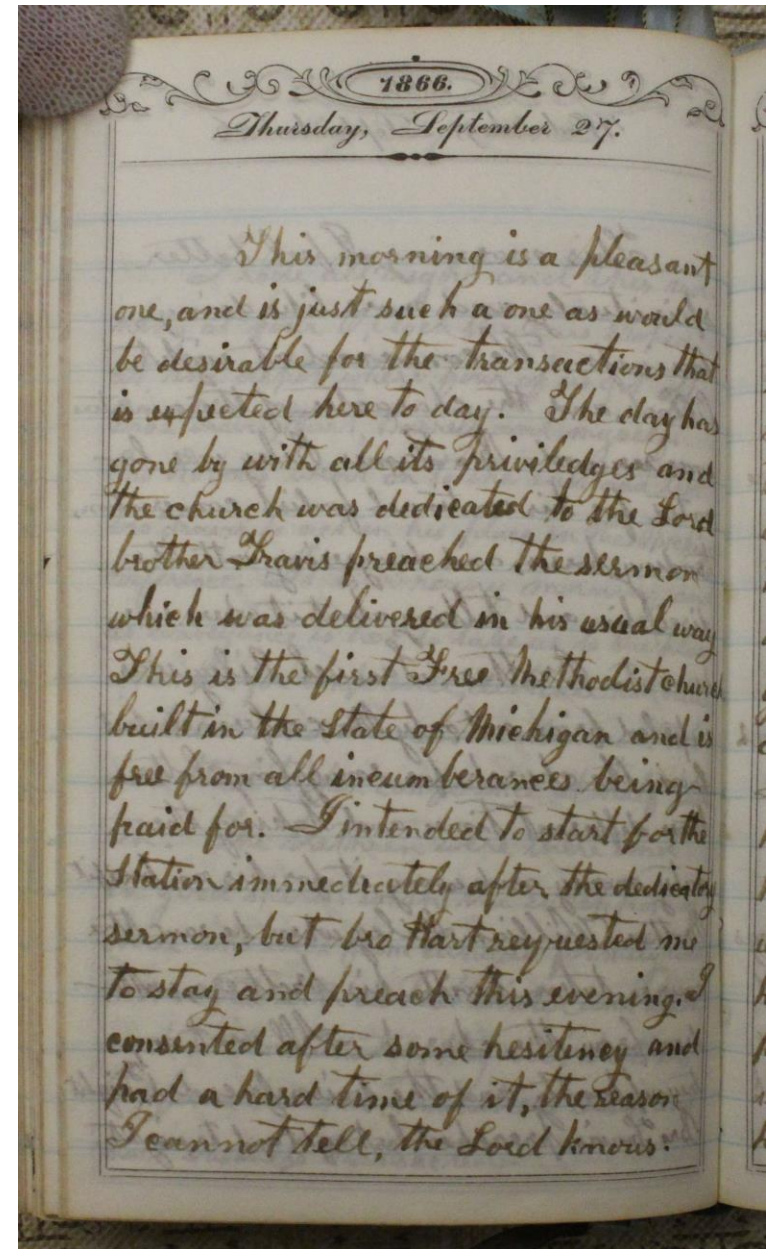 1866.
Thursday, September 27.
This morning is a pleasant
one, and is just such a one as would
be desirable for the transactions that
is expected here to day. The day has
gone by with all its priviledges and
the church was dedicated to the Lord
brother Travis preached the sermon
which was delivered in his usual way
This is the first Free Methodist church
built in the State of Michigan and is
free from all incumberances being
paid for. I intended to start for the
Station immediately after the dedicatory
sermon, but bro Hart requested me
to stay and preach this evening. I
consented after some hesitency and
had a hard time of it, the reason
I cannot tell, the Lord knows.